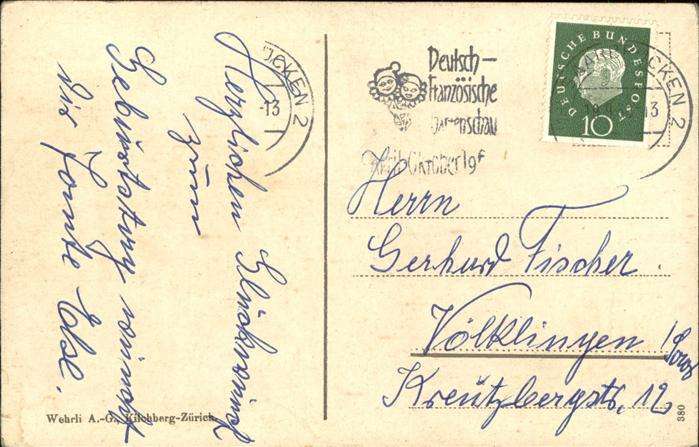 Herzlichen Glückwunsch
zum
Geburtstag wünscht
Dir Tante Else.
Wehrli A.-G., Kilchberg-Zürich
ÜCKEN 2
-13
Deutsch-
Französische
Gartenschau
Oktober 19
DEUTSCHE BUNDESPOST
10
SAARBRÜCKEN 2
13
Herrn
Gerhard Fischer.
Völklingen /Saar
Kreutzbergstr. 12
380